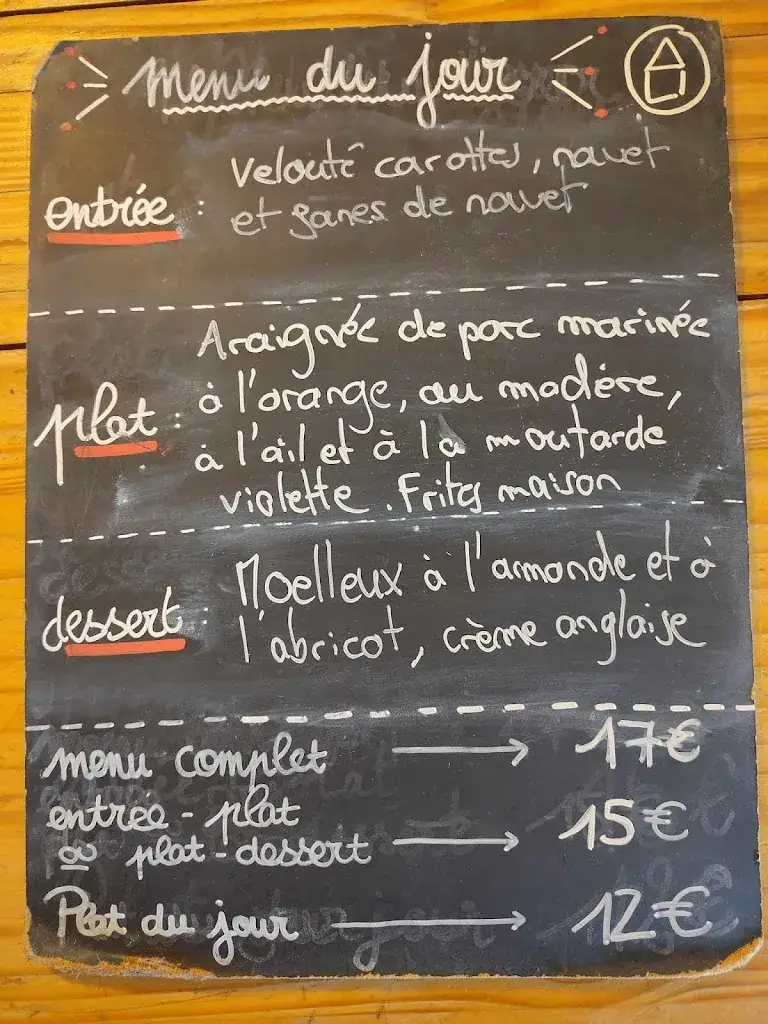 menu du jour
entrée : Velouté carottes, navet
et fanes de navet
plat : Araignée de porc marinée
à l'orange, au madère,
à l'ail et à la moutarde
violette. Frites maison
dessert : Moelleux à l'amande et à
l'abricot, crème anglaise
menu complet → 17€
entrée - plat
ou plat - dessert → 15€
Plat du jour → 12€